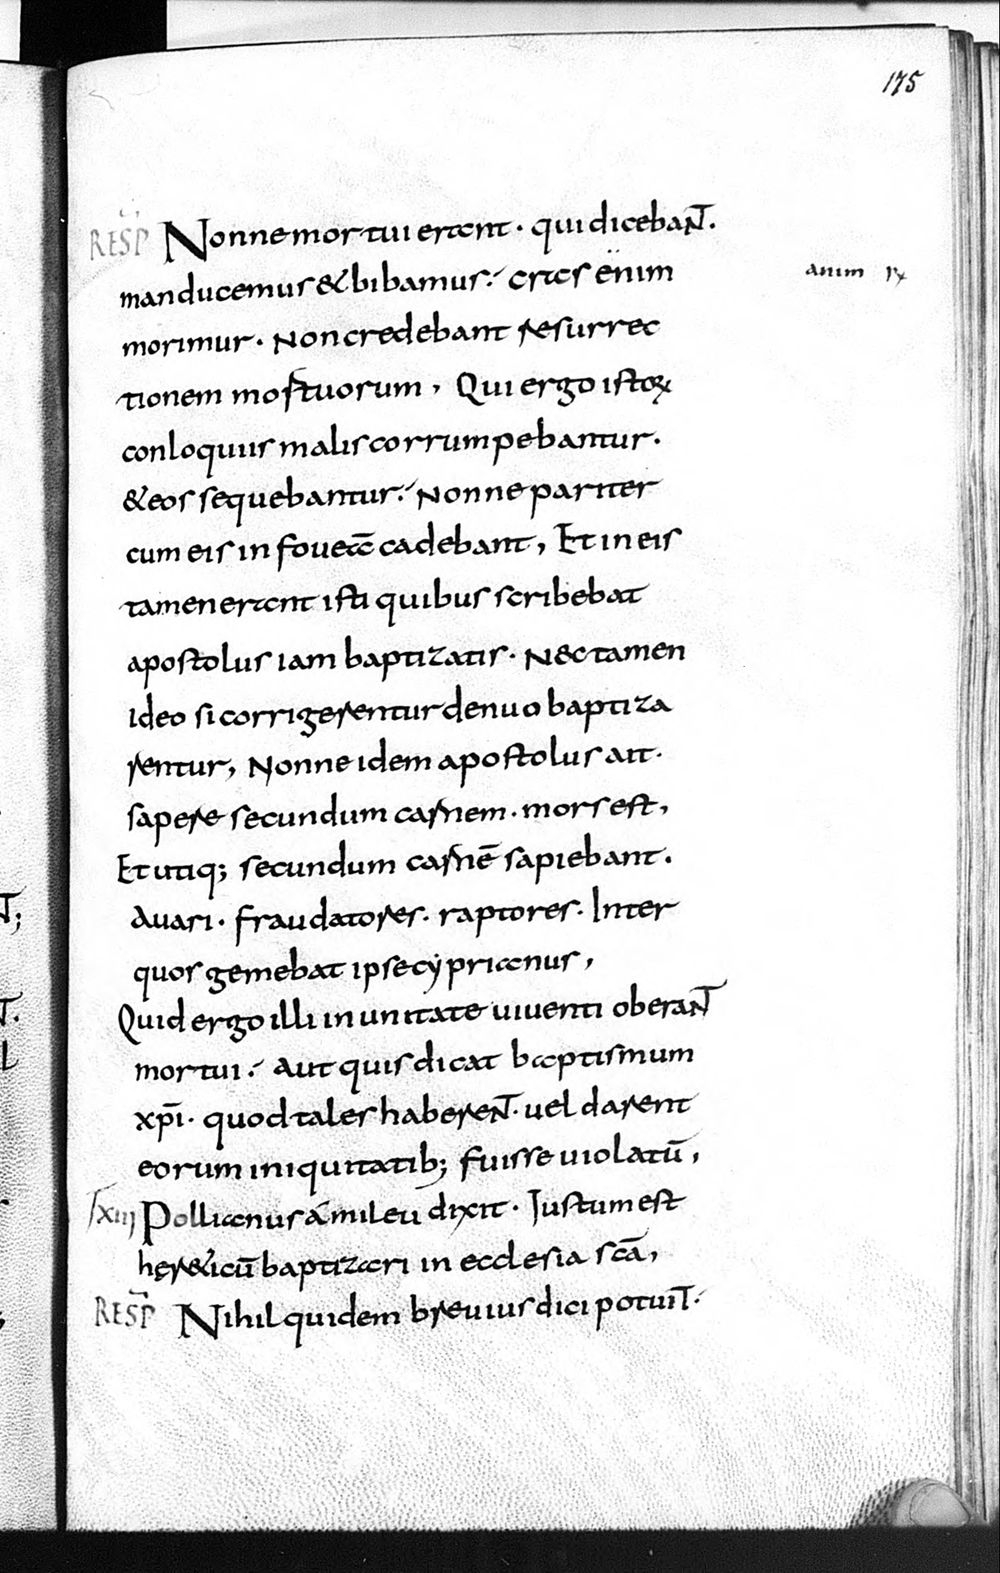 175
RESP Nonne mortui erant · qui dicebaNT.
manducemus & bibamus? cras enim
anim
morimur · Non credebant resurrec
tionem mortuorum, Qui ergo istoꝝ
conloquiis malis corrumpebantur.
& eos sequebantur? Nonne pariter
cum eis in foueā cadebant, Et in eis
tamen erant isti quibus scribebat
apostolus iam baptizatis · Nec tamen
ideo si corrigerentur denuo baptiza
rentur, Nonne idem apostolus ait·
sapere secundum carnem · mors est,
Et utiq; secundum carnē sapiebant.
Auari · fraudatores · raptores · Inter
quos gemebat ipse cyprianus,
Quid ergo illi in unitate uiuenti oberaNT
mortui? Aut quis dicat baptismum
xp̄i · quod tales habereNT· uel darent
eorum iniquitatib; fuisse uiolatū,
lxiij Pollianus a mileu dixit · Justum est
her&icū baptizari in ecclesia scā,
RESP Nihil quidem breuius dici potuiT·